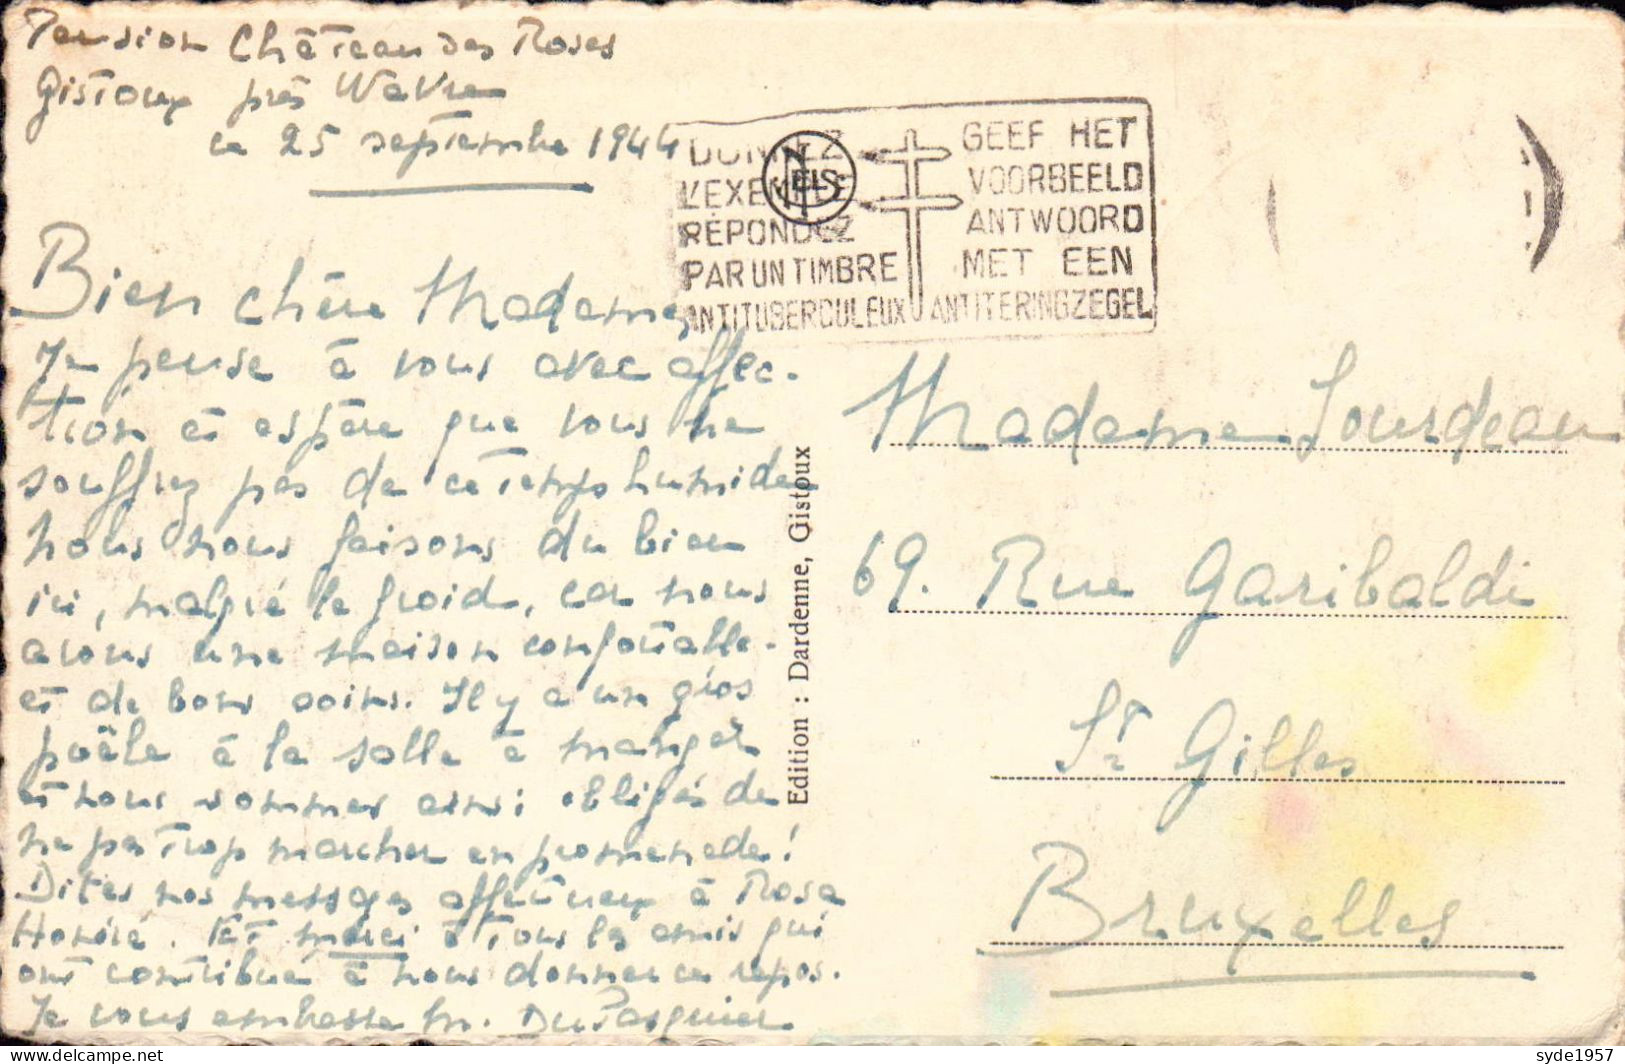 Pension Château des Roses
Gistoux près Wavre
le 25 septembre 1944
Bien chère Madame,
Je pense à vous avec affec-
tion et espère que vous ne
souffrez pas de ce temps humide
nous nous faisons du bien
ici, malgré le froid, car nous
avons une maison confortable.
et de bons soins. Il y a un gros
poêle à la salle à manger
et nous sommes ainsi obligés de
ne pas trop marcher en promenade!
Dites nos messages affectueux à Rosa
Honoré. Et merci à tous les amis qui
ont contribué à nous donner ce repos.
Je vous embrasse M. DuPasquier
DONNEZ
L'EXEMPLE
RÉPONDEZ
PAR UN TIMBRE
ANTITUBERCULEUX
NELS
GEEF HET
VOORBEELD
ANTWOORD
MET EEN
ANTITERINGZEGEL
Edition : Dardenne, Gistoux
Madame Sourdeau
69. Rue Garibaldi
St Gilles
Bruxelles
delcampe.net
syde1957